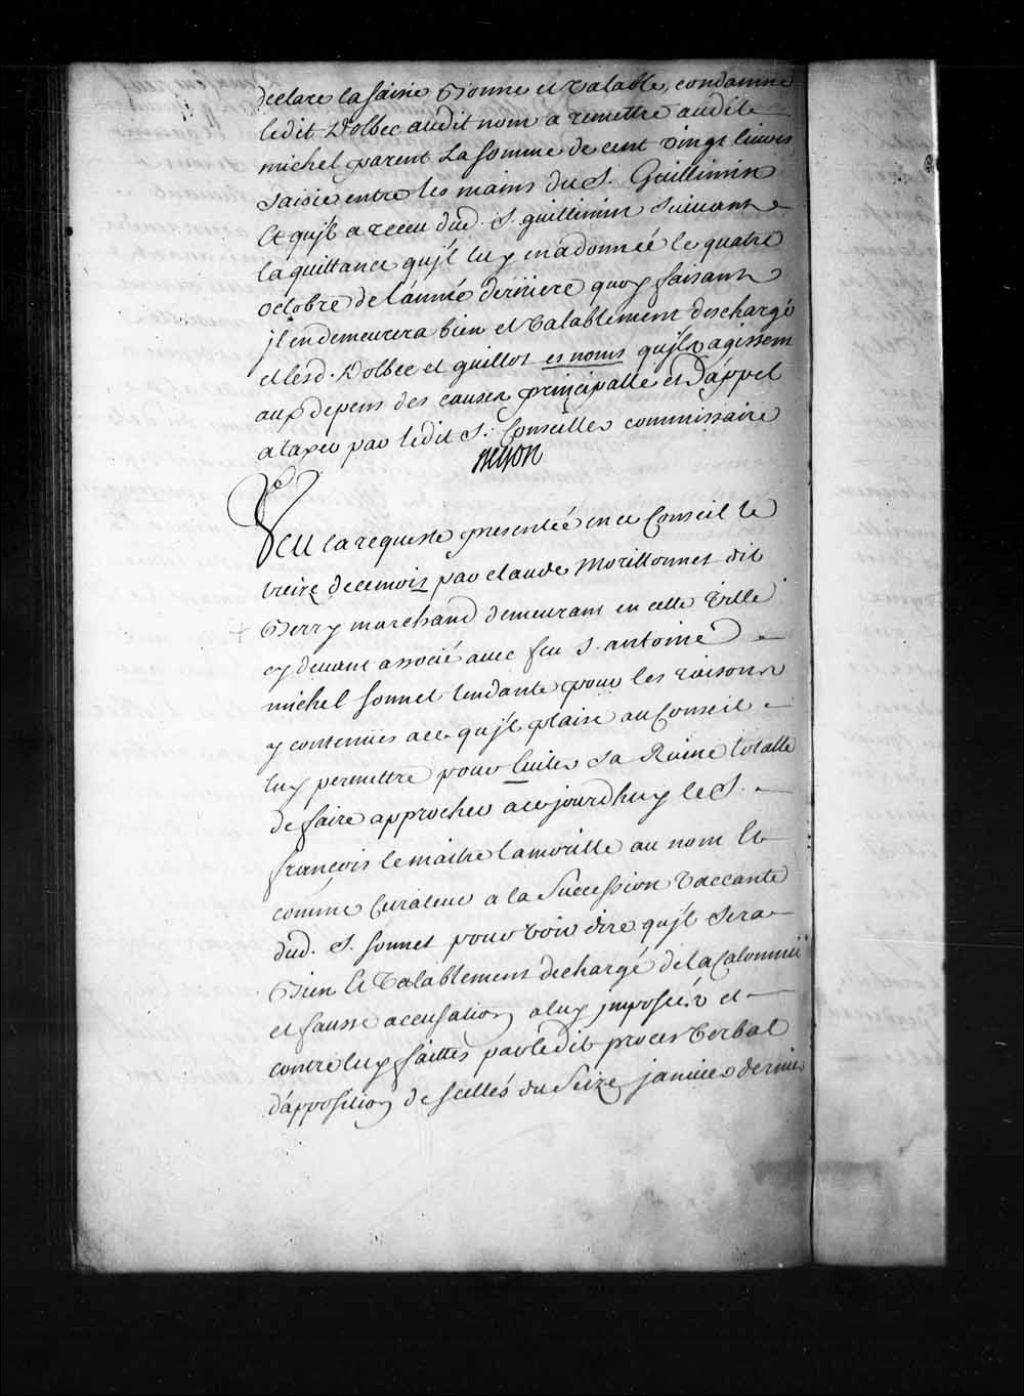 declare la saisie bonne et valable, condamne
ledit Dolbec audit nom a remettre audit
michel parent La somme de cent vingt livres
saisie entre les mains du S. Guillimin
Et qu'jl a receu dud. S. guillimin suivant
la quittance qu'jl luy en a donnée le quatre
octobre de l'année derniere quoy faisant
jl en demeurera bien et valablement deschargé
et lesd. Dolbec et guillot es noms qu'jls agissent
aux depens des causes principalle et d'appel
a taxer par ledit S. Conseiller commissaire
Veu la requeste presentée en ce Conseil le
treize de ce mois par claude Morillonnet dit
Berry marchand demeurant en cette Ville
cy devant associé avec feu S. antoine
michel sonnet tendante pour les raisons
y contenües a ce qu'jl plaise au Conseil
luy permettre pour Eviter sa Ruine totalle
de faire approcher a ce jourdhuy le S.
françois lemaitre lamorille au nom Et
comme Curateur a la Succession Vaccante
dud. S. sonnet pour voir dire qu'jl sera
Bien Et Valablement dechargé de la Calomnie
et fausse accusation a luy jmposée et
contre luy faittes par ledit proces Verbal
d'apposition de scellés du Seize janvier dernier